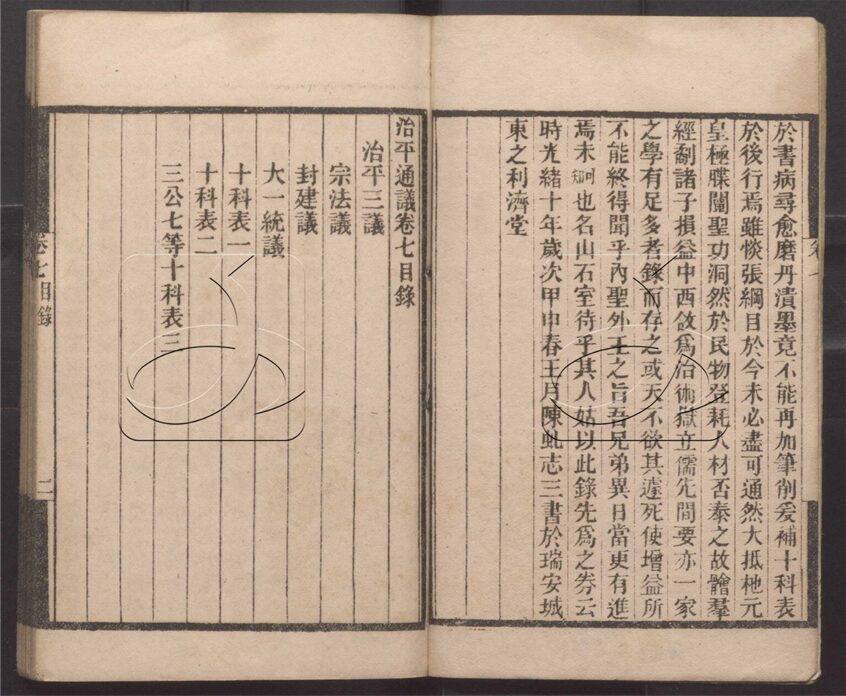 於書病尋愈磨丹漬墨竟不能再加筆削爰補十科表
於後行焉雖惔張綱目於今未必盡可通然大抵杝元
皇極牒闡聖功洞然於民物登耗人材否泰之故膾羣
經劀諸子損益中西斂爲治術嶽立儒先間要亦一家
之學有足多者錄而存之或天不欲其遽死使增益所
不能終得聞乎內聖外王之旨吾兄弟異日當更有進
焉未可知也名山石室待乎其人姑以此錄先爲之券云
時光緒十年歲次甲申春王月陳虬志三書於瑞安城
東之利濟堂
治平通議卷七目錄
治平三議
宗法議
封建議
大一統議
十科表一
十科表二
三公七等十科表三
卷七目錄
二